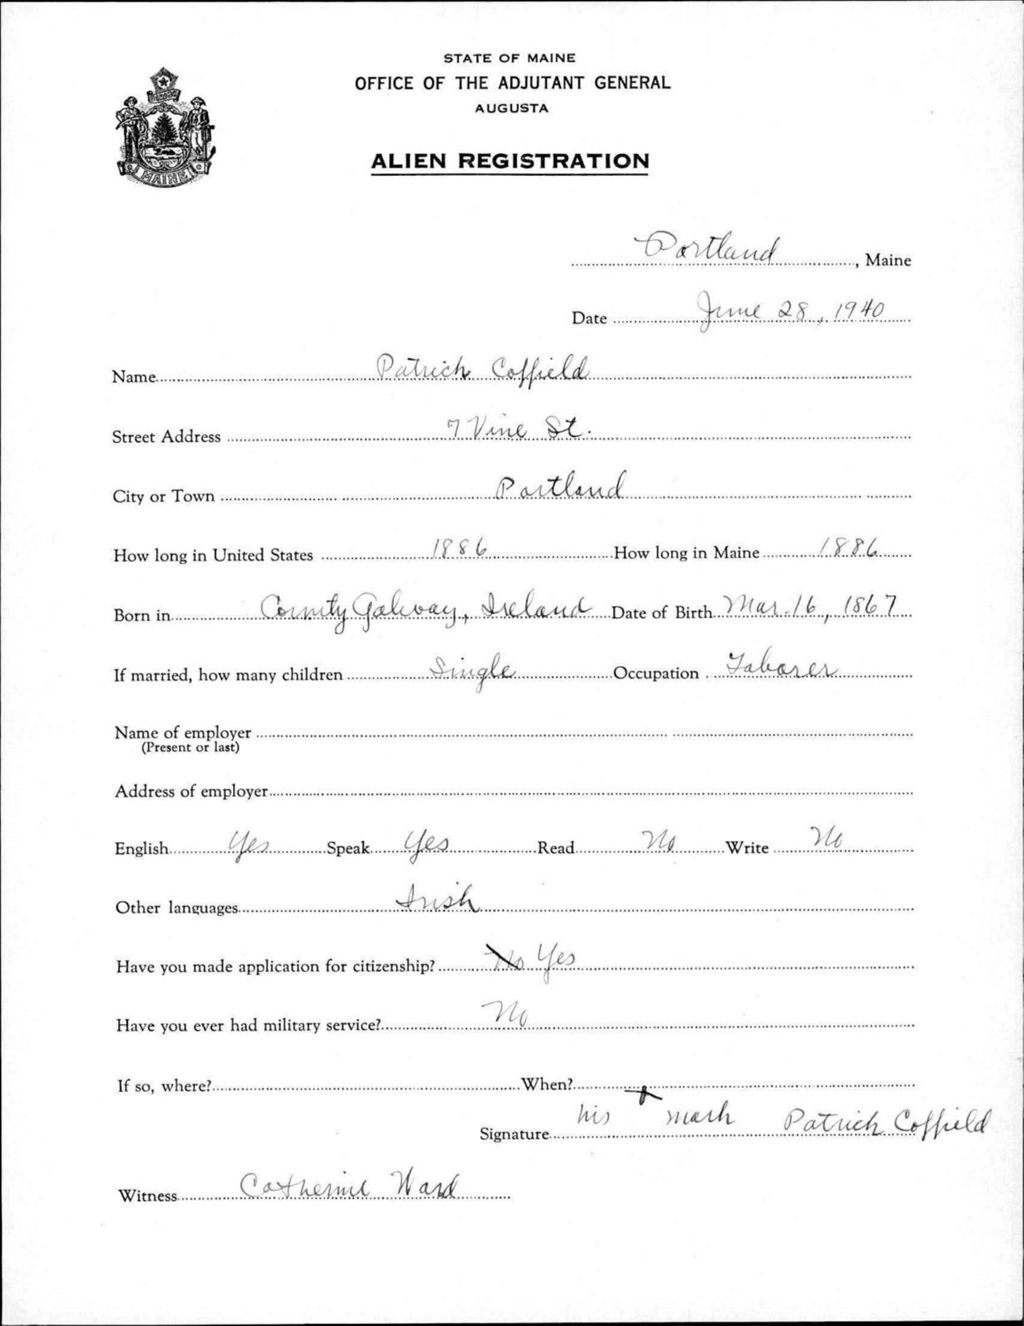 STATE OF MAINE
OFFICE OF THE ADJUTANT GENERAL
AUGUSTA
ALIEN REGISTRATION
MAINE
Portland, Maine
Date June 28, 1940
Name Patrick Coffield
Street Address 7 Vine St.
City or Town Portland
How long in United States 1886 How long in Maine 1886
Born in County Galway, Ireland Date of Birth Mar. 16, 1867
If married, how many children Single Occupation Laborer
Name of employer
(Present or last)
Address of employer
English Yes Speak Yes Read No Write No
Other languages Irish
Have you made application for citizenship? No Yes
Have you ever had military service? No
If so, where? When?
his x mark Patrick Coffield
Signature
Witness Catherine Ward